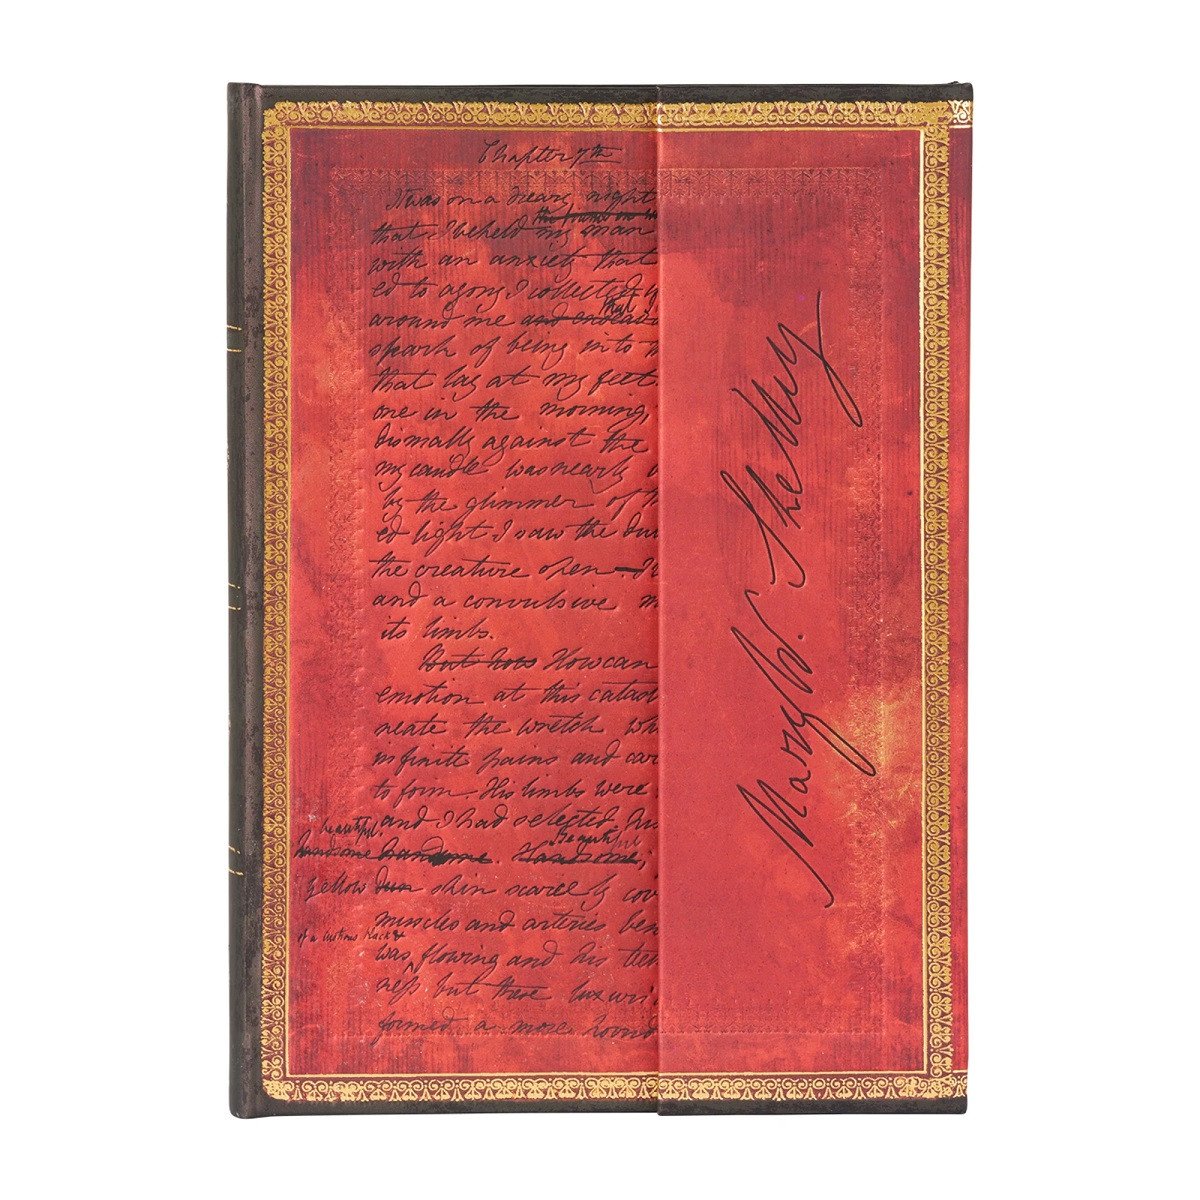 Chapter 7th
It was on a dreary night
the frame on w
that I beheld my man
with an anxiety that
ed to agony I collected
around me and endeav
that
spark of being into
that lay at my feet.
one in the morning,
dismally against the
my candle was nearly
by the glimmer of
ed light I saw the du
the creature open
and a convulsive
its limbs.
But how How can
emotion at this catas
neate the wretch wh
infinite pains and car
to form. His limbs were
and I had selected
beautiful. Beautiful
handsome handsome. Handsome,
yellow dun skin scarcely cov
muscles and arteries ben
of a lustrous black &
was flowing and his tee
ness but these luxuri
formed a more
Mary W. Shelley